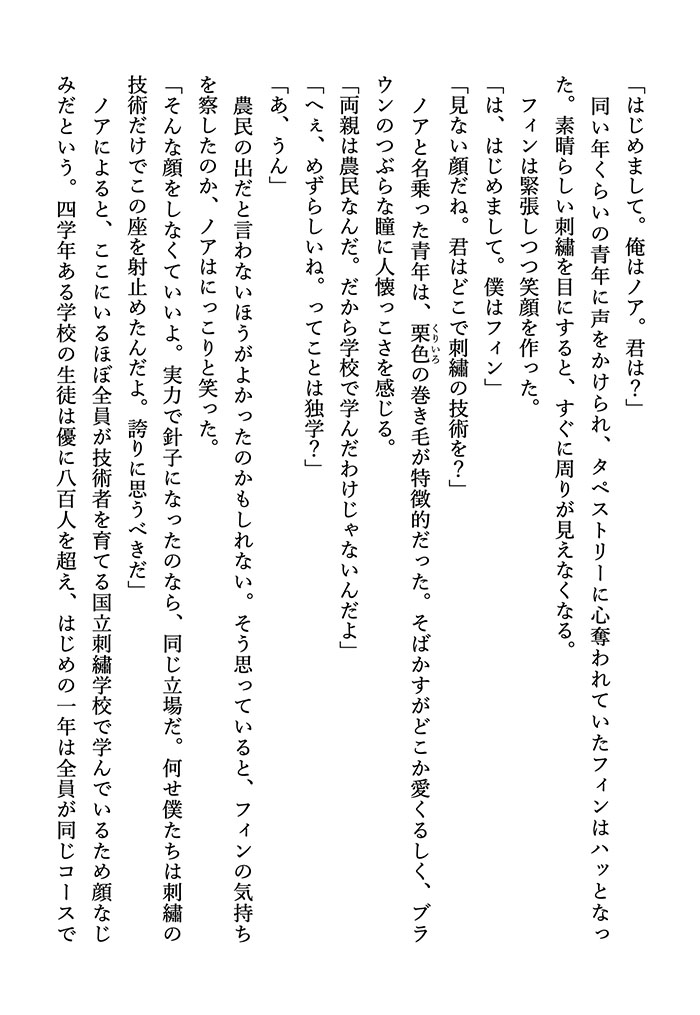 「はじめまして。俺はノア。君は?」
　同い年くらいの青年に声をかけられ、タペストリーに心奪われていたフィンはハッとなっ
た。素晴らしい刺繡を目にすると、すぐに周りが見えなくなる。
　フィンは緊張しつつ笑顔を作った。
「は、はじめまして。僕はフィン」
「見ない顔だね。君はどこで刺繡の技術を?」
　ノアと名乗った青年は、栗色の巻き毛が特徴的だった。そばかすがどこか愛くるしく、ブラ
くりいろ
ウンのつぶらな瞳に人懐っこさを感じる。
「両親は農民なんだ。だから学校で学んだわけじゃないんだよ」
「へぇ、めずらしいね。ってことは独学?」
「あ、うん」
　農民の出だと言わないほうがよかったのかもしれない。そう思っていると、フィンの気持ち
を察したのか、ノアはにっこりと笑った。
「そんな顔をしなくていいよ。実力で針子になったのなら、同じ立場だ。何せ僕たちは刺繡の
技術だけでこの座を射止めたんだよ。誇りに思うべきだ」
　ノアによると、ここにいるほぼ全員が技術者を育てる国立刺繡学校で学んでいるため顔なじ
みだという。四学年ある学校の生徒は優に八百人を超え、はじめの一年は全員が同じコースで